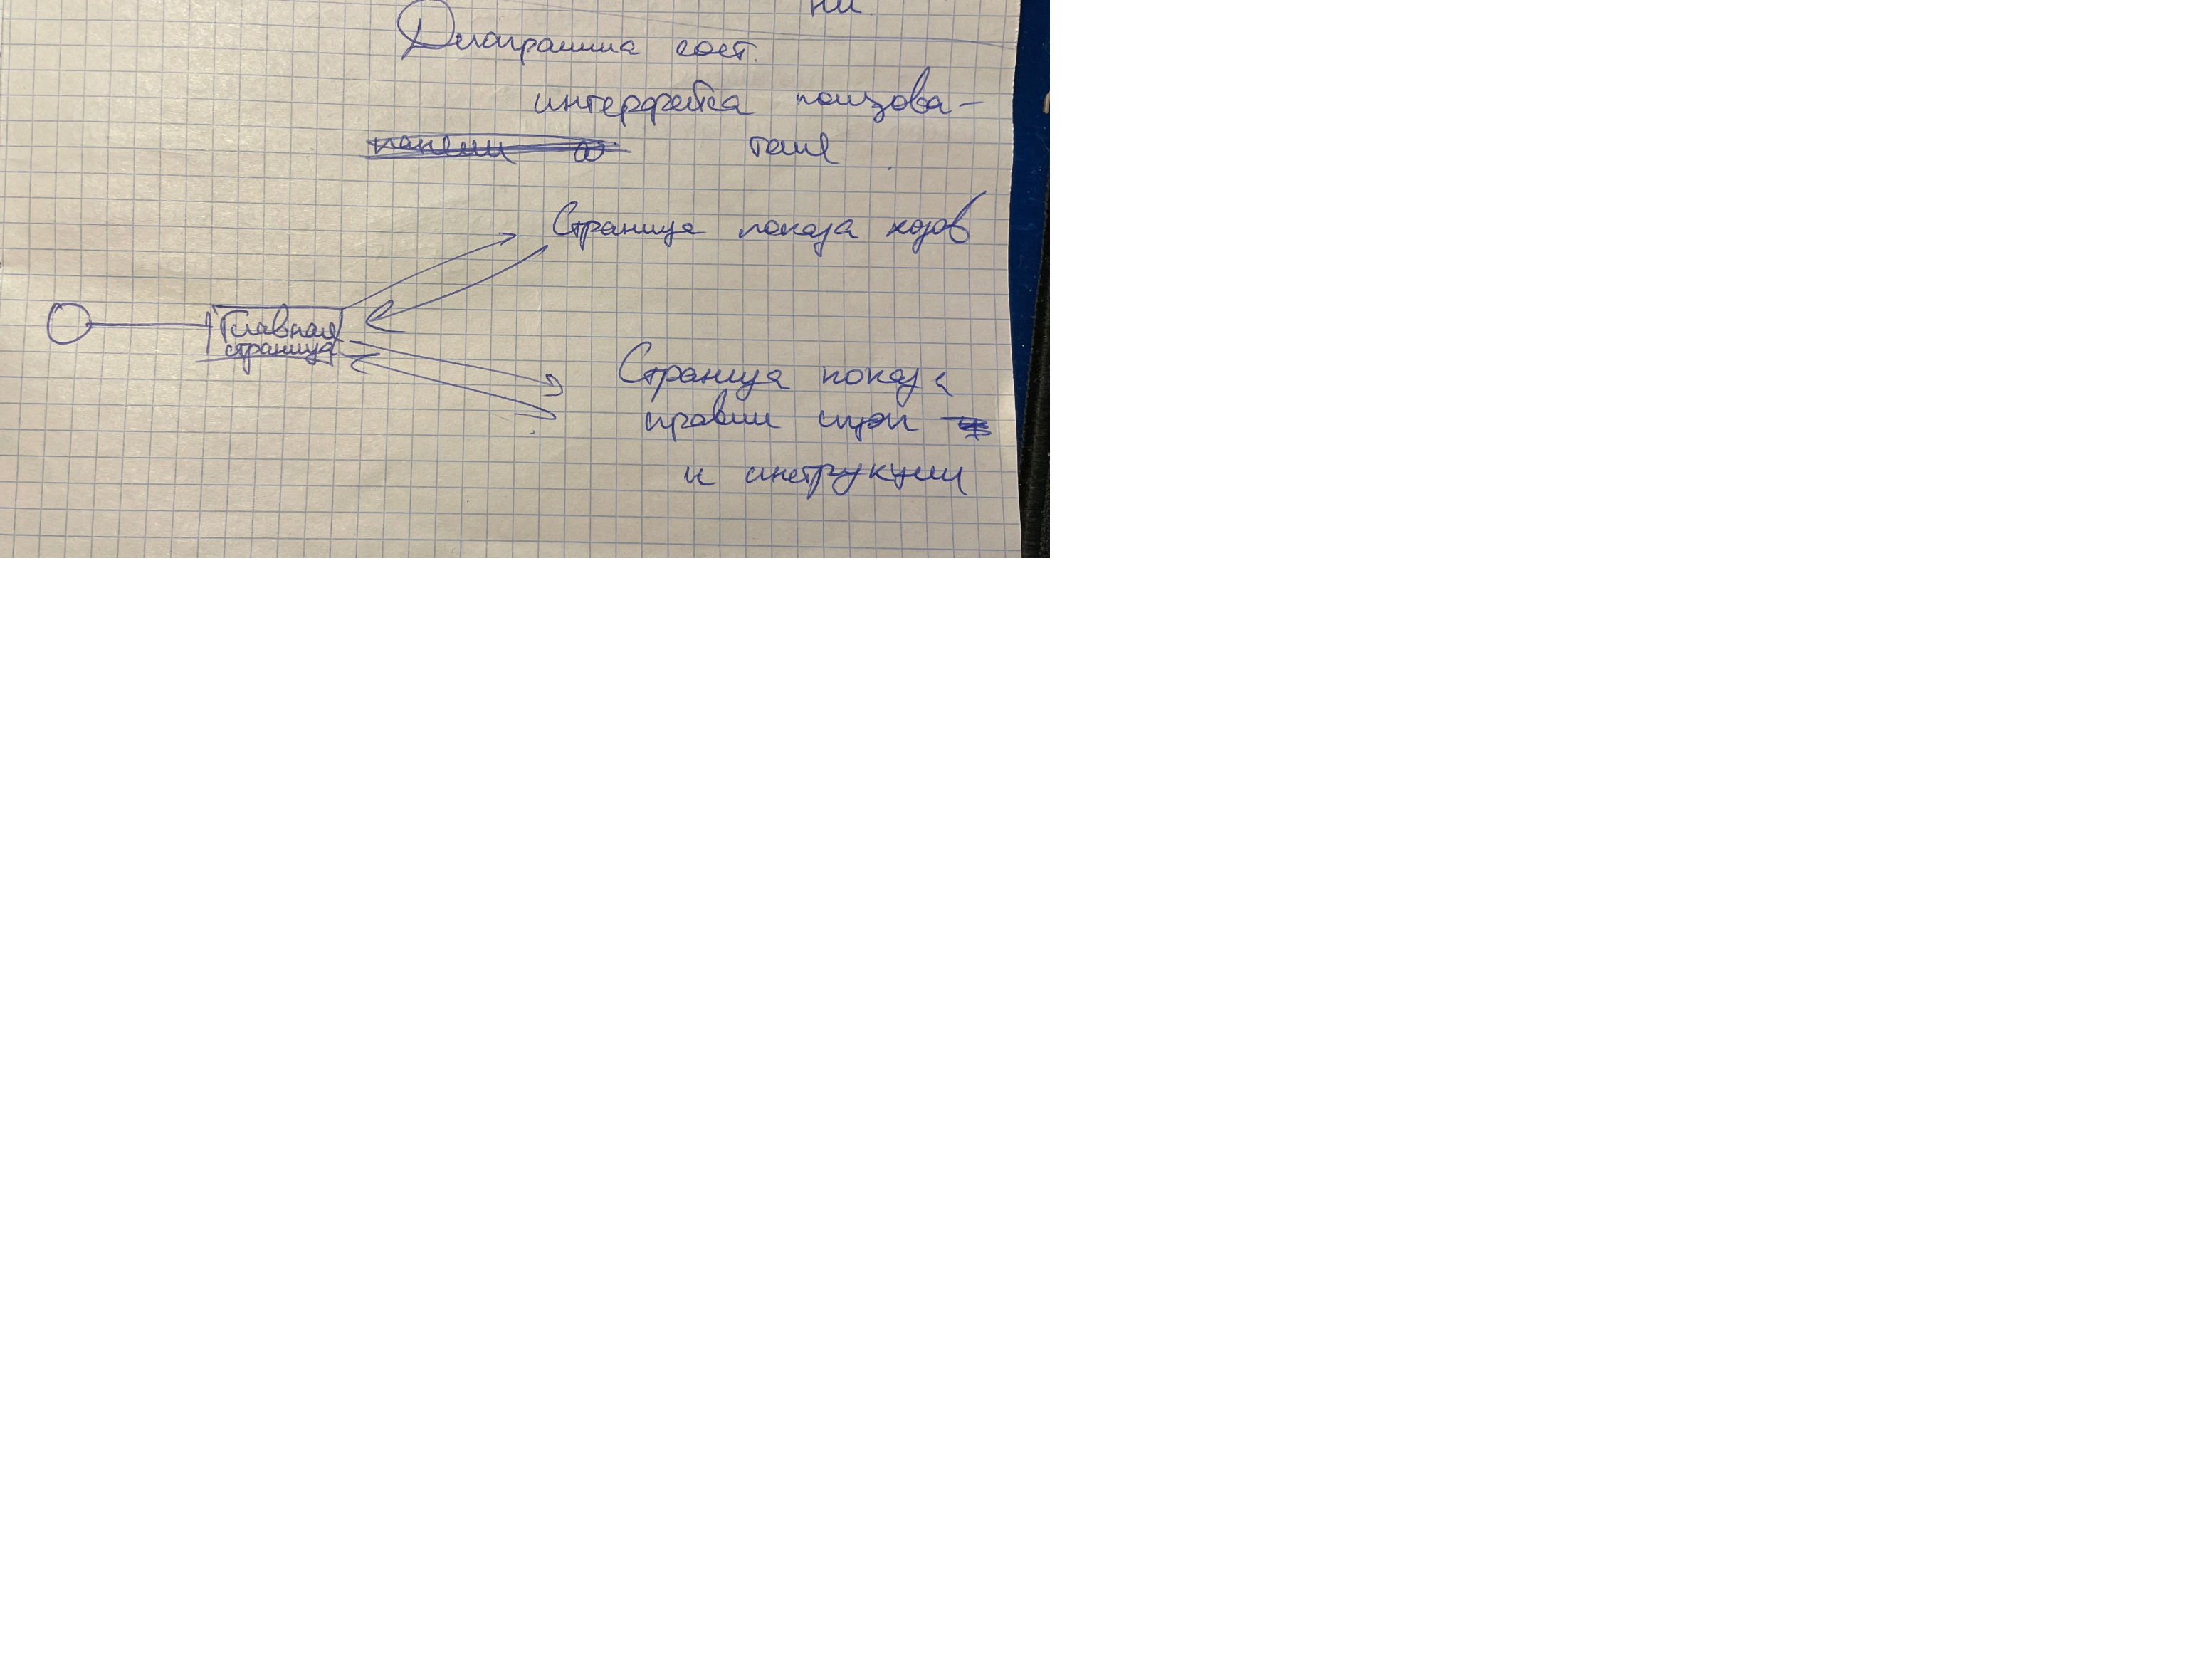 ни.
Диаграмма сост.
интерфейса пользова-
теля
Страница показа ходов
Главная
страница
Страница показа
правил игры
и инструкции